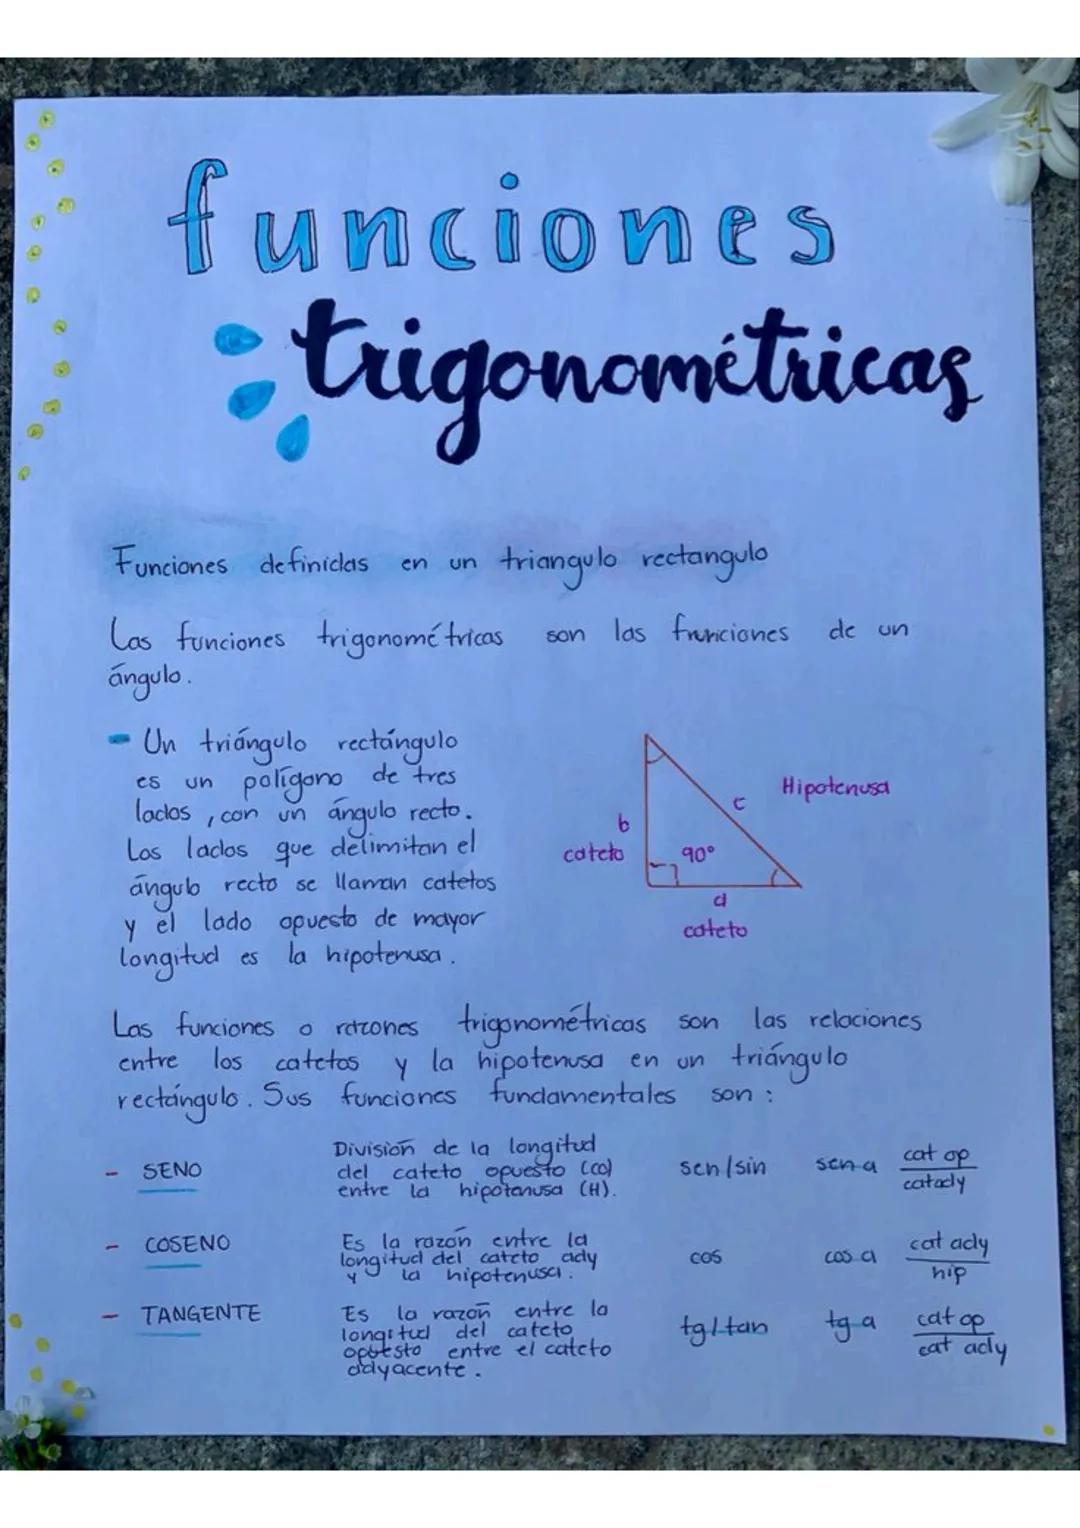 funciones
trigonométricas
Funciones definidas en un triangulo rectangulo
Las funciones trigonométricas son las funciones de un
ángulo.
- Un triángulo rectángulo
es un polígono de tres
lados, con un ángulo recto.
Los lados que delimitan el
ángulo recto se llaman catetos
y el lado opuesto de mayor
longitud es la hipotenusa.
Hipotenusa
c
b
cateto
90°
a
cateto
Las funciones o razones trigonométricas son las relaciones
entre los catetos y la hipotenusa en un triángulo
rectángulo. Sus funciones fundamentales son:
- SENO
División de la longitud
del cateto opuesto (co)
entre la hipotenusa (H).
sen/sin
sen a
cat op
cat ady
- COSENO
Es la razón entre la
longitud del cateto ady
y la hipotenusa.
cos
cos a
cat ady
hip
- TANGENTE
Es la razón entre la
longitud del cateto
opuesto entre el cateto
adyacente.
tg/tan
tg a
cat op
cat ady